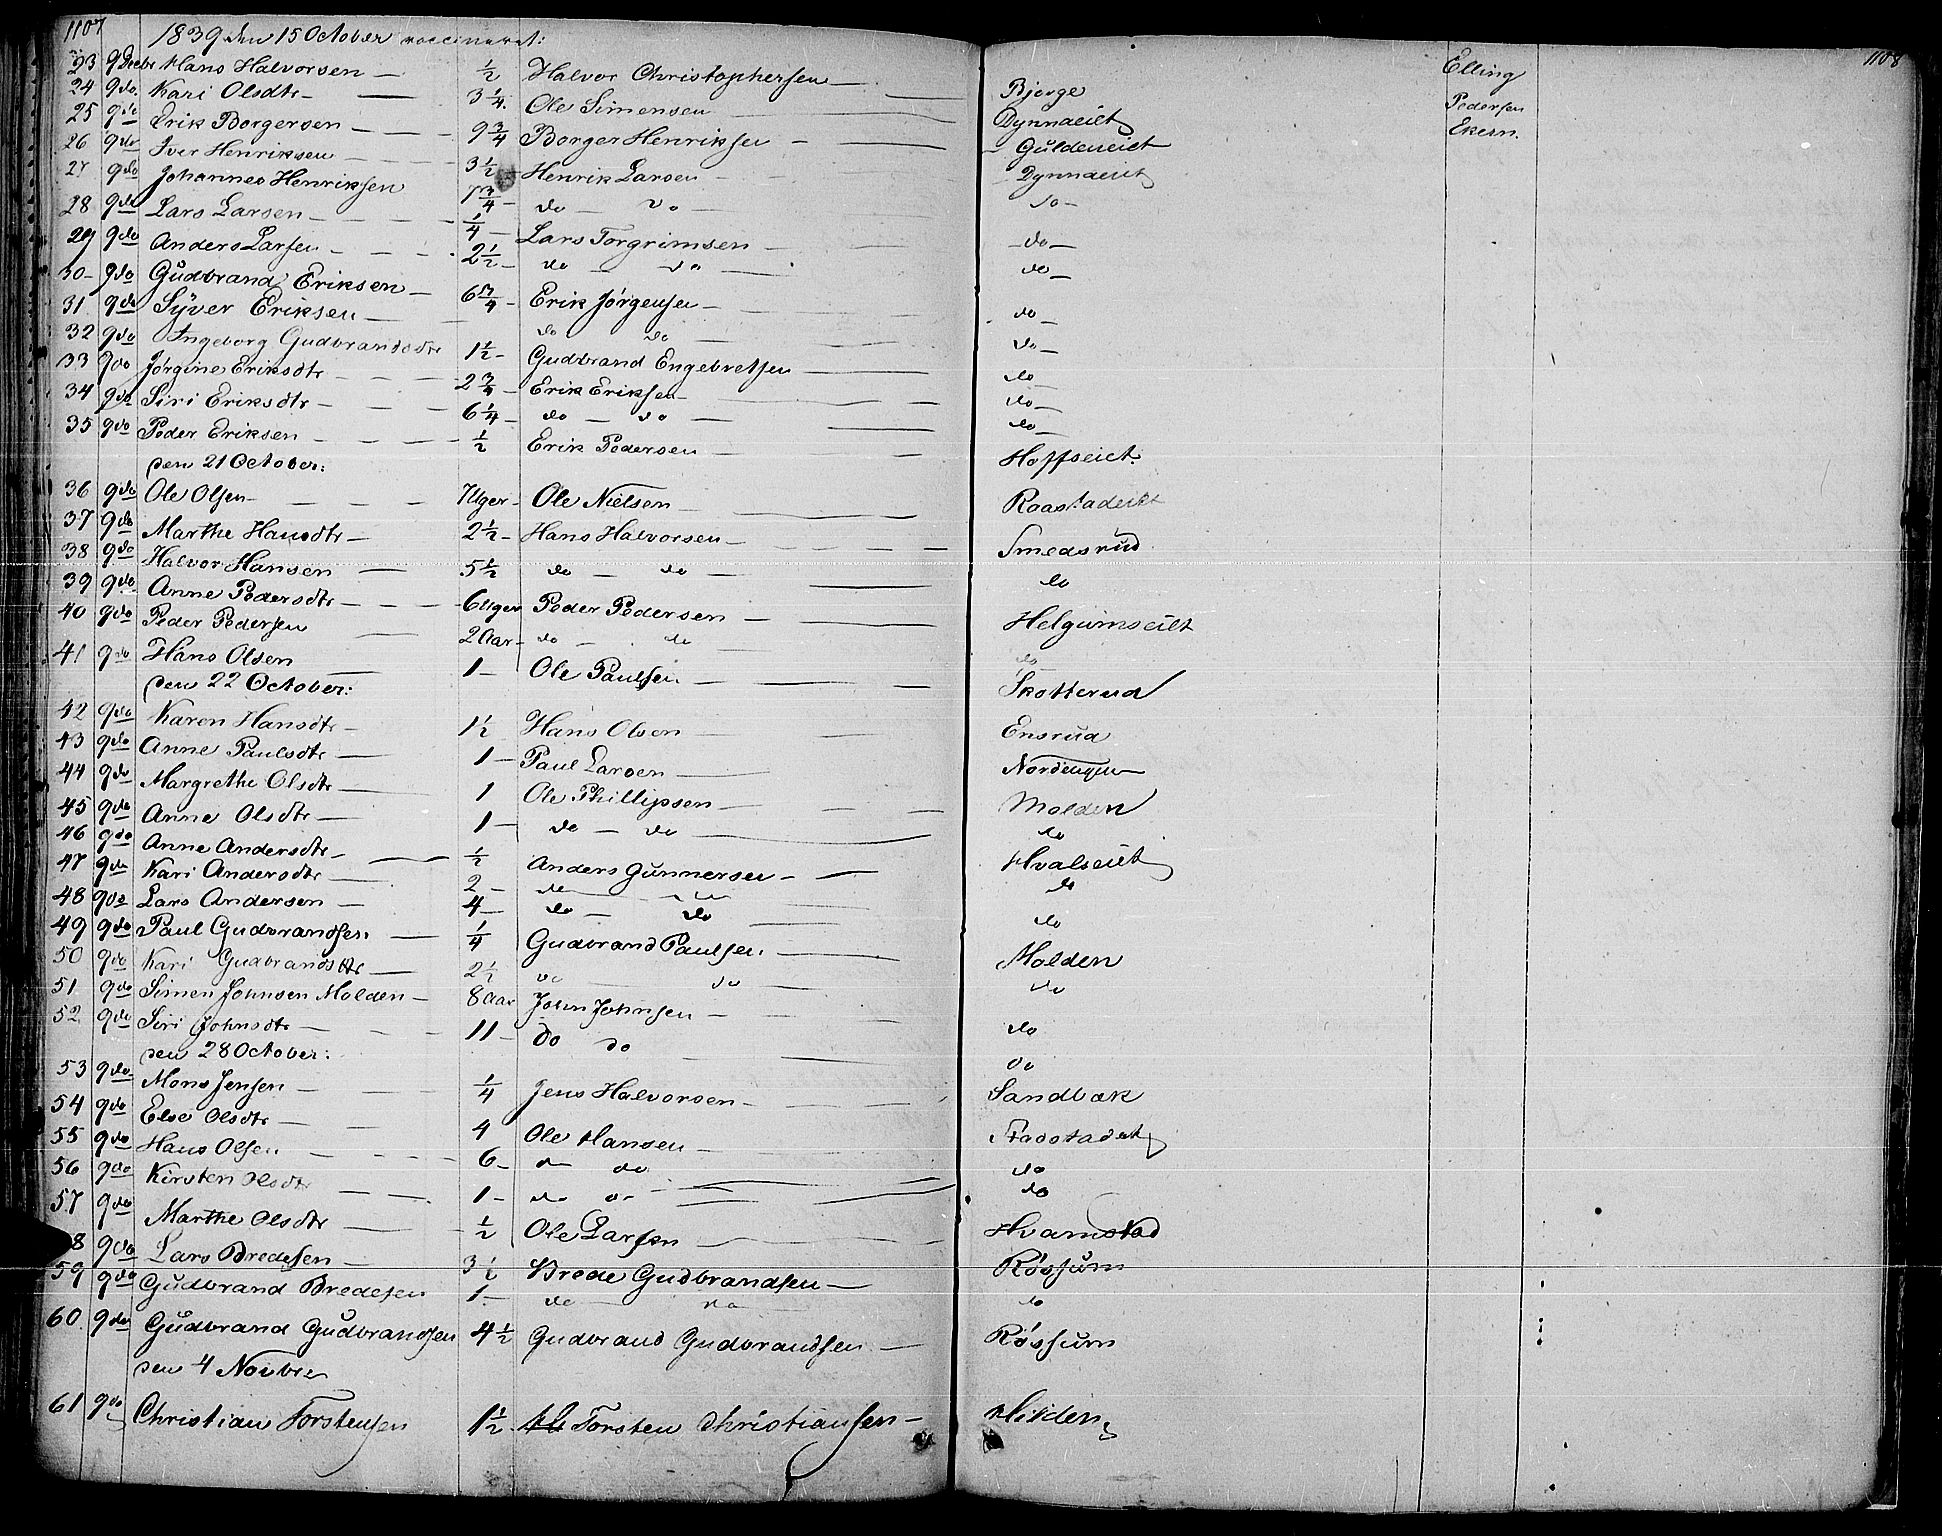 1107
1839 den 15 October vaccineret:
23 9 Decbr Hans Halvorsen — 1/2 Halvor Christophersen — Bjerge Elling
24 9 do Kari Olsdtr — 3 1/4 Ole Simensen — Dynnaeiet Pedersen
25 9 do Erik Borgersen — 9 3/4 Borger Henriksen — Guldeneiet Ekern
26 9 do Iver Henriksen — 3 1/2 Henrik Larsen — Dynnaeiet
27 9 do Johannes Henriksen 7 3/4 do — do — do —
28 9 do Lars Larsen — 1/4 Lars Torgrimsen — do —
29 9 do Anders Larsen — 2 1/2 do — do — do —
30 9 do Gudbrand Eriksen — 6 3/4 Erik Jørgensen — do —
31 9 do Syver Eriksen — do do do —
32 9 do Ingeborg Gudbrandsdtr 1 1/2 Gudbrand Engebretsen — do
33 9 do Jørgine Eriksdtr — 2 3/4 Erik Eriksen — do —
34 9 do Siri Eriksdtr — 6 1/4 do — do — do —
35 9 do Peder Eriksen — 1/2 Erik Pedersen — Hoffseiet
den 21 October:
36 9 do Ole Olsen — 7 Uger Ole Nielsen — Raastadeiet
37 9 do Marthe Hansdtr — 2 1/2 Hans Halvorsen — Smedsrud
38 9 do Halvor Hansen — 5 1/2 do — do — do
39 9 do Anne Pedersdtr — 6 Uger Peder Pedersen — Helgumseiet
40 9 do Peder Pedersen 2 Aar do — do do
41 9 do Hans Olsen 1 — Ole Paulsen — Skotterud
den 22 October:
42 9 do Karen Hansdtr — 1 1/2 Hans Olsen — Ensrud
43 9 do Anne Paulsdtr — 1 — Paul Larsen — Nordengen
44 9 do Margrethe Olsdtr — 1 Ole Phillipsen — Molden
45 9 do Anne Olsdtr — 1 — do — do do
46 9 do Anne Andersdtr — 1/2 Anders Gunnersen — Hvalseiet
47 9 do Kari Andersdtr — 2 — do do do
48 9 do Lars Andersen — 4 — do — do do
49 9 do Paul Gudbrandsen — 1/4 Gudbrand Paulsen — Molden
50 9 do Kari Gudbrandsdtr — 2 1/2 do do do
51 9 do Simen Johnsen Molden — 8 Aar John Johnsen — do
52 9 do Siri Johnsdtr — 11 — do do do
den 28 October:
53 9 do Mons Jensen — 1/4 Jens Halvorsen — Sandbæk
54 9 do Else Olsdtr — 4 Ole Hansen —
55 9 do Hans Olsen 6 — do do do
56 9 do Kirsten Olsdtr 1 — do do do
57 9 do Marthe Olsdtr — 1/2 Ole Larsen — Hvamstad
8 9 do Lars Bredesen — 3 1/2 Brede Gudbrandsen — Røssum
59 9 do Gudbrand Bredesen 1 — do do do
60 9 do Gudbrand Gudbrandsen 4 1/2 Gudbrand Gudbrandsen — Røssum
den 4 Novbr
61 9 do Christian Torstensen 1 1/2 Torsten Christiansen — Hilden
1108